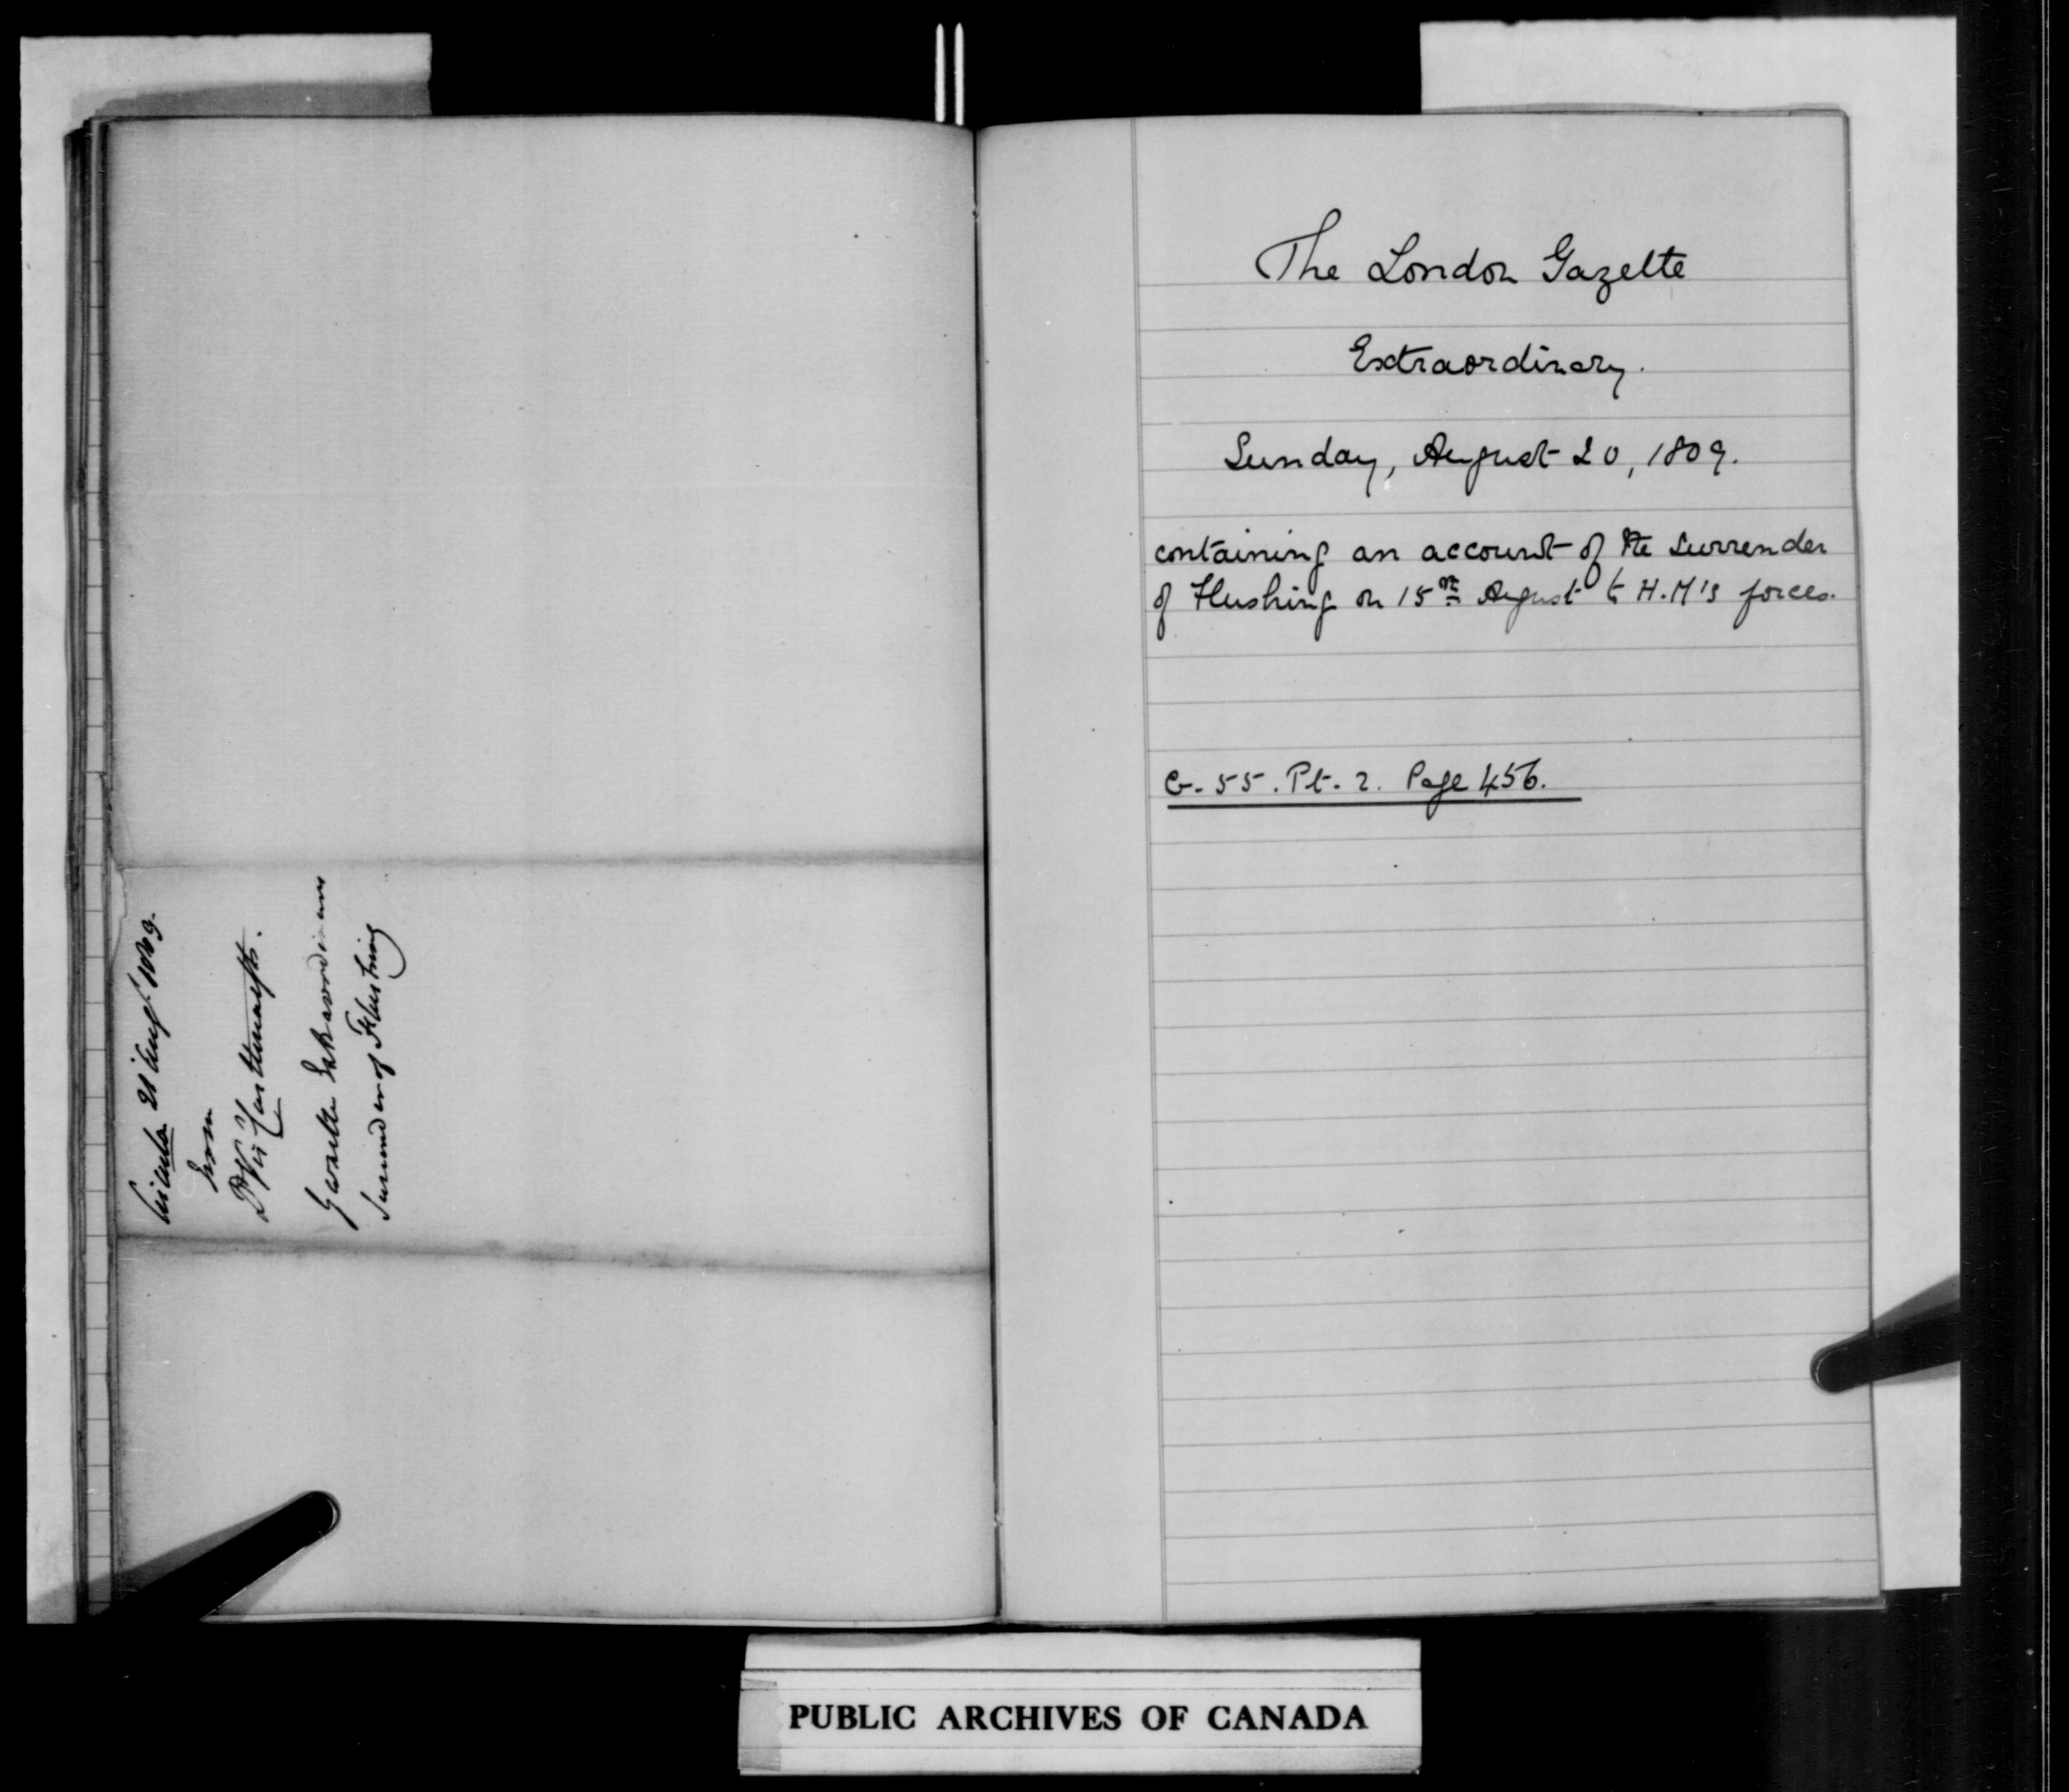 Circular 21 Augt 1809.
from
Ld Vist Castlereagh.
Gazette Extraordinary
Surrender of Flushing
The London Gazette
Extraordinary.
Sunday, August 20, 1809.
containing an account of the surrender
of Flushing on 15th August to H.M's forces.
G. 55. Pt. 2. Page 456.
PUBLIC ARCHIVES OF CANADA